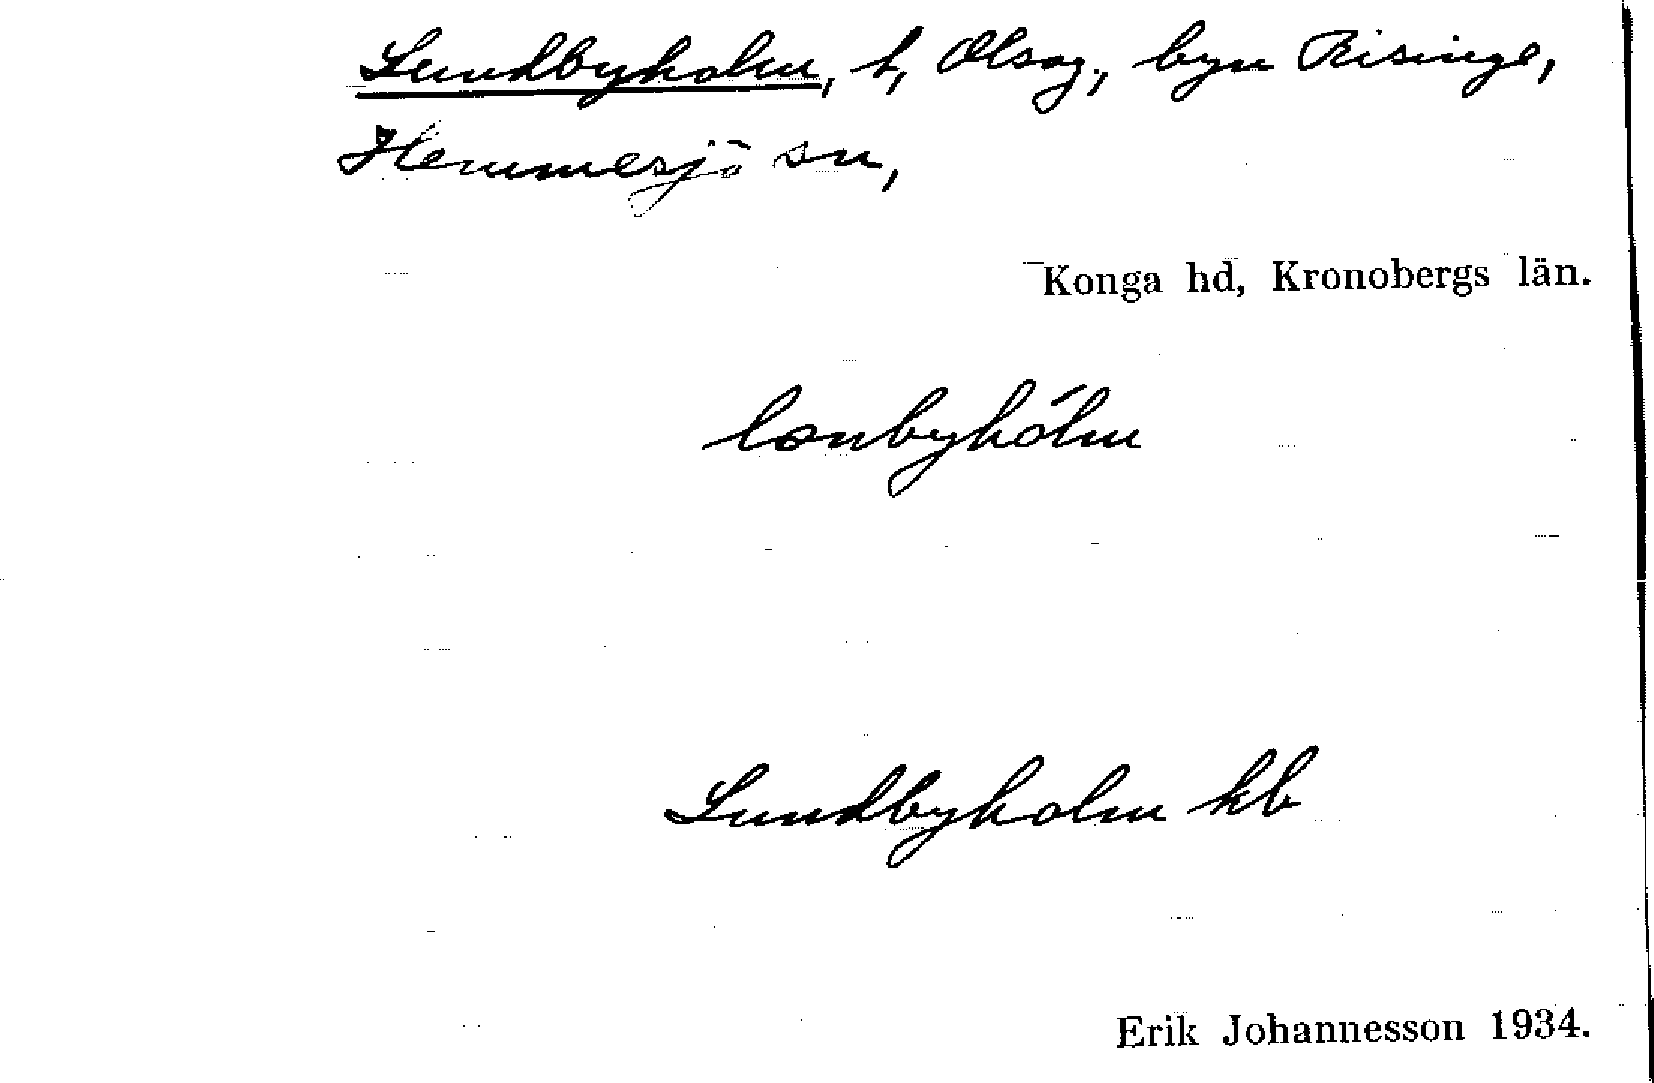 Lundbyholm, t, Olsag, byn Risinge,
Hemmesjö sn,
Konga hd, Kronobergs län.
lonbyhólm
Lundbyholm kb
Erik Johannesson 1934.